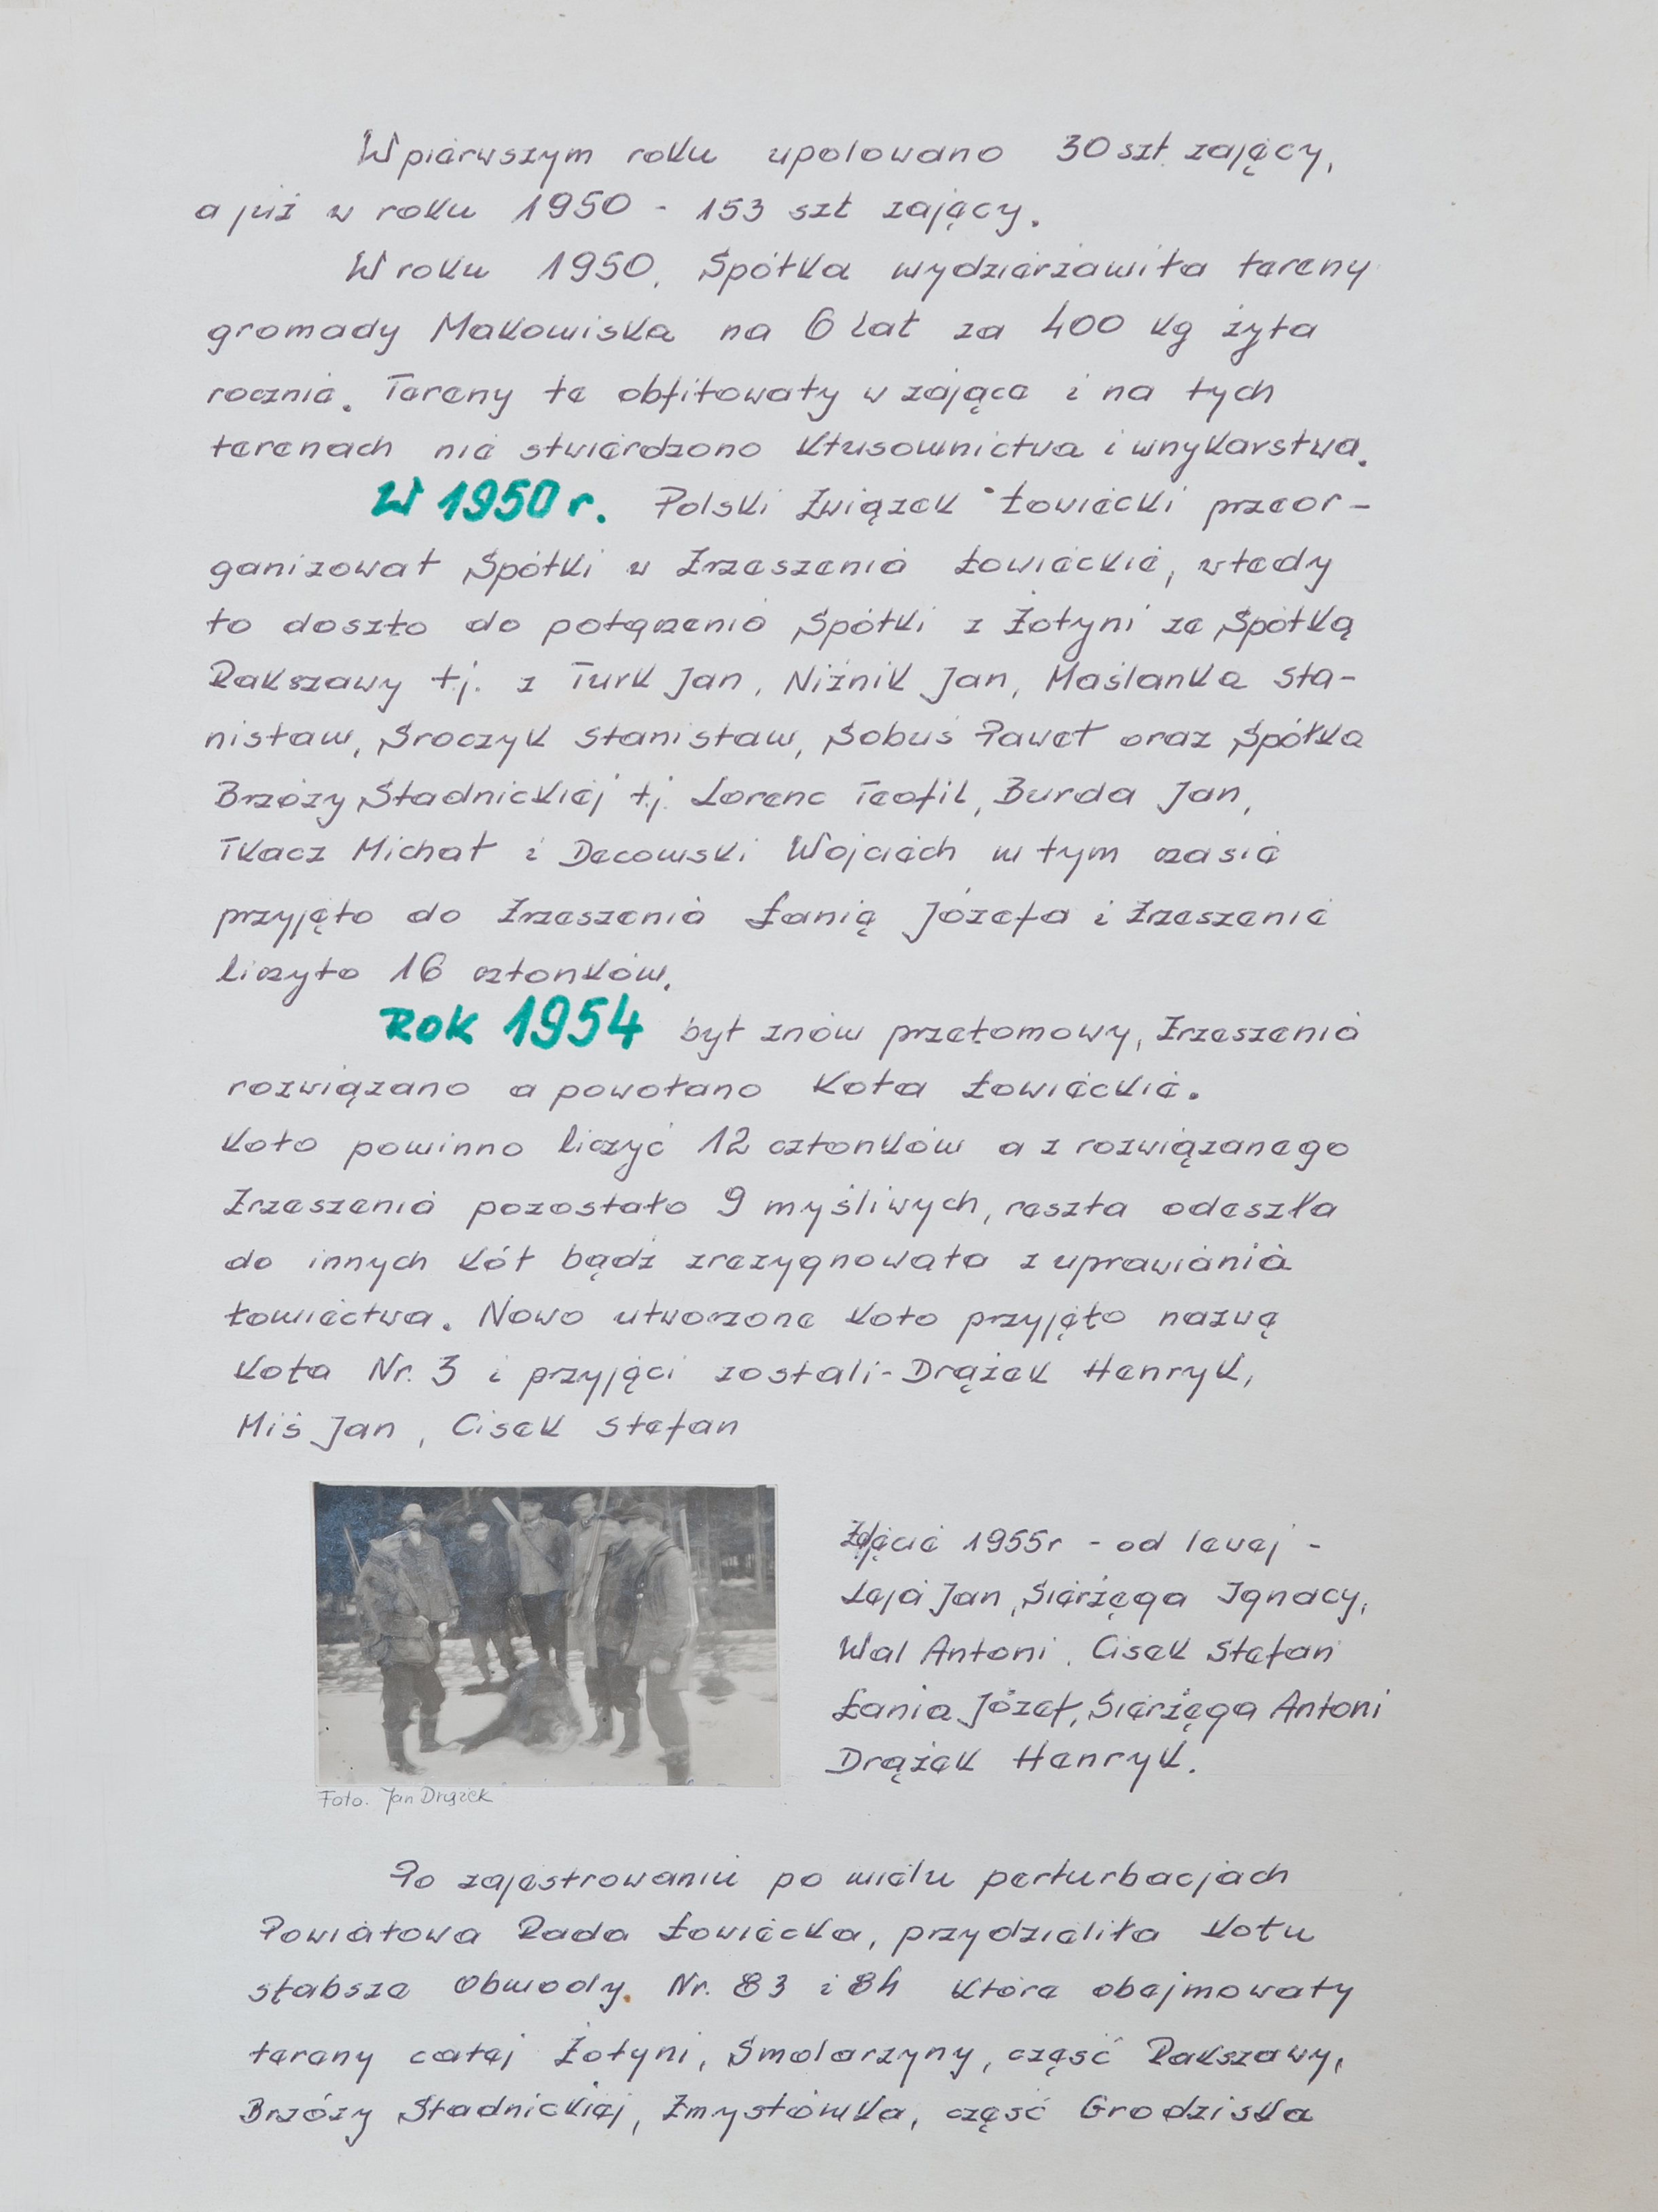 W pierwszym roku upolowano 30 szt. zajęcy,
a już w roku 1950 - 153 szt zajęcy.
W roku 1950, Spółka wydzierżawiła tereny
gromady Makowiska na 6 lat za 400 kg żyta
rocznie. Tereny te obfitowały w zające i na tych
terenach nie stwierdzono kłusownictwa i wnykarstwa.
W 1950 r. Polski Związek Łowiecki przeor-
ganizował Spółki w Zrzeszenia Łowieckie, wtedy
to doszło do połączenia Spółki z Żołyni ze Spółką
Rakszawy t.j. z Turk Jan, Niźnik Jan, Maślanka Sta-
nisław, Sroczyk Stanisław, Sobuś Paweł oraz Spółka
Brzózy Stadnickiej t.j. Lorenc Teofil, Burda Jan,
Tkacz Michał i Decowski Wojciech w tym czasie
przyjęto do Zrzeszenia Łanię Józefa i Zrzeszenie
liczyło 16 członków.
Rok 1954 był znów przełomowy, Zrzeszenia
rozwiązano a powołano Koła Łowieckie.
Koło powinno liczyć 12 członków a z rozwiązanego
Zrzeszenia pozostało 9 myśliwych, reszta odeszła
do innych Kół bądź zrezygnowała z uprawiania
łowiectwa. Nowo utworzone Koło przyjęło nazwę
Koła Nr. 3 i przyjęci zostali - Drążek Henryk,
Miś Jan, Cisek Stefan
Zdjęcie 1955r - od lewej -
Leja Jan, Sierżęga Ignacy,
Wal Antoni, Cisek Stefan
Łania Józef, Sierżęga Antoni
Drążek Henryk.
Foto. Jan Drążek
Po zajestrowaniu po wielu perturbacjach
Powiatowa Rada Łowiecka, przydzieliła Kołu
słabsze Obwody. Nr. 83 i 84 które obejmowały
tereny całej Żołyni, Smolarzyny, część Rakszawy,
Brzózy Stadnickiej, Zmysłówka, część Grodziska